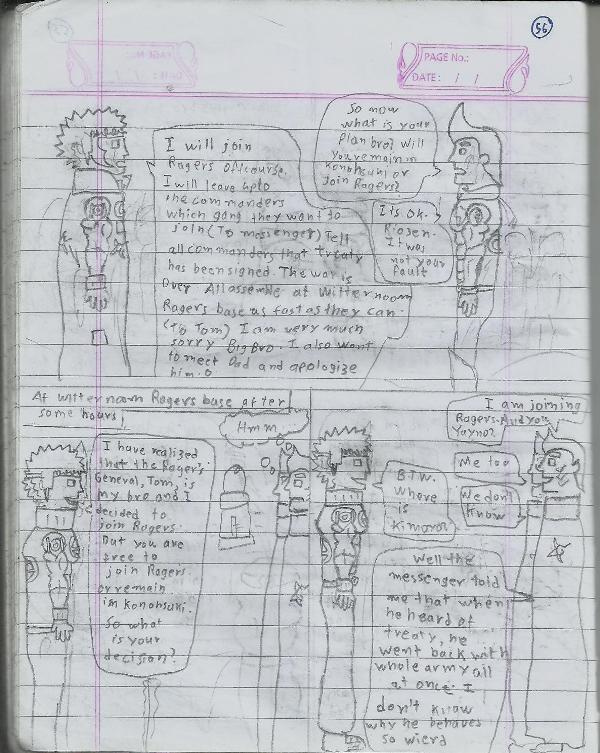 56
PAGE No.:
DATE: / /
So now
what is your
plan bro? Will
you remain in
Konohsuki or
Join Rogers?
I will join
Rogers offcourse.
I will leave upto
the commanders
which gang they want to
join (To messenger) Tell
all commanders that treaty
has been signed. The war is
over All assemble at Witternoom
Rogers base as fast as they can.
(To Tom) I am very much
sorry Big Bro. I also want
to meet Dad and apologize
him.
It is Ok.
Kiosen.
It was
not your
fault
At Witternoom Rogers base after
some hours,
Hmm
I have realized
that the Roger's
General, Tom, is
my bro and I
decided to
join Rogers.
But you are
free to
join Rogers
or remain
in Konohsuki.
So what
is your
decision?
I am joining
Rogers. And you
Me too
B.T.W.
Where
is
We don't
Know
Well the
messenger told
me that when
he heard of
treaty, he
went back with
whole army all
at once. I
don't know
why he behaves
so wierd